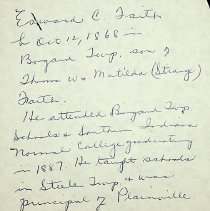 Edward C. Faith
b Oct 12, 1868 in
Bogard Twp. son of
Thom W & Matilda (Strange)
Faith.
He attended Bogard Twp
Schools & Southern Indiana
Normal College graduating
in 1887. He taught schools
in Steele Twp & was
principal of Plainville